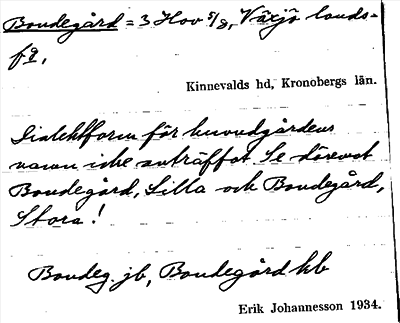 Bondegård = 3 Hov 5/8, Växjö lands-
fg.
Kinnevalds hd, Kronobergs län.
Dialektform för huvudgårdens
namn icke anträffat. Se däremot
Bondegård, Lilla och Bondegård,
Stora!
Bondeg. jb, Bondegård kb
Erik Johannesson 1934.